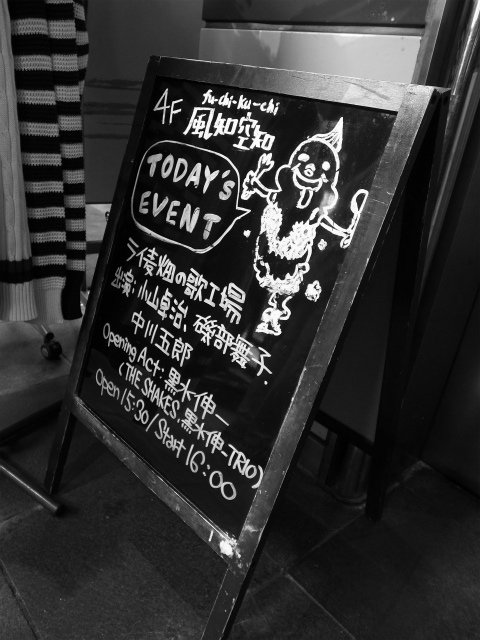 4F
fu-chi-ku-chi
風知空知
TODAY'S
EVENT
ライ麦畑の歌工場
出演:小山卓治、磯部舞子、
中川五郎
Opening Act:黒水伸一
(THE SHAKES、黒水伸一TRIO)
Open 15:30/Start 16:00